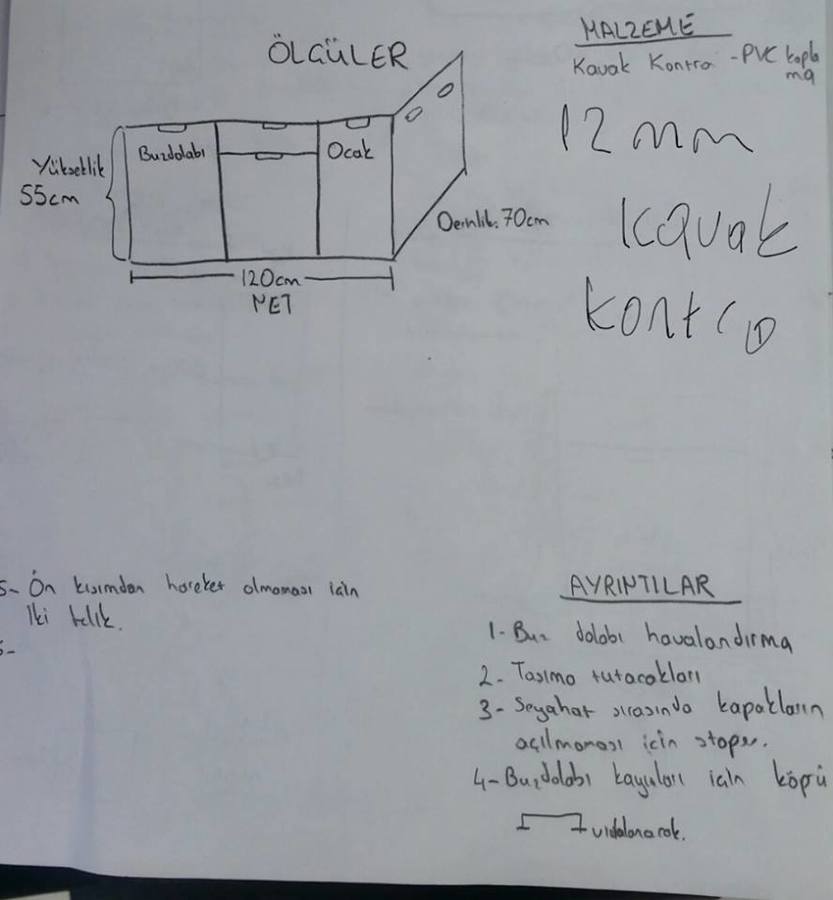 ÖLÇÜLER
Yükseklik
55cm
Buzdolabı
Ocak
Derinlik: 70cm
120cm
NET
MALZEME
Kavak Kontra - PVC kapla
ma
12 mm
Kavak
Kontra
5- Ön kısımdan hareket olmaması için
İki delik.
6-
AYRINTILAR
1- Buz dolabı havalandırma
2- Taşıma tutacakları
3- Seyahat sırasında kapakların
açılmaması için stoper.
4- Buzdolabı kayışları için köprü
vidalanarak.